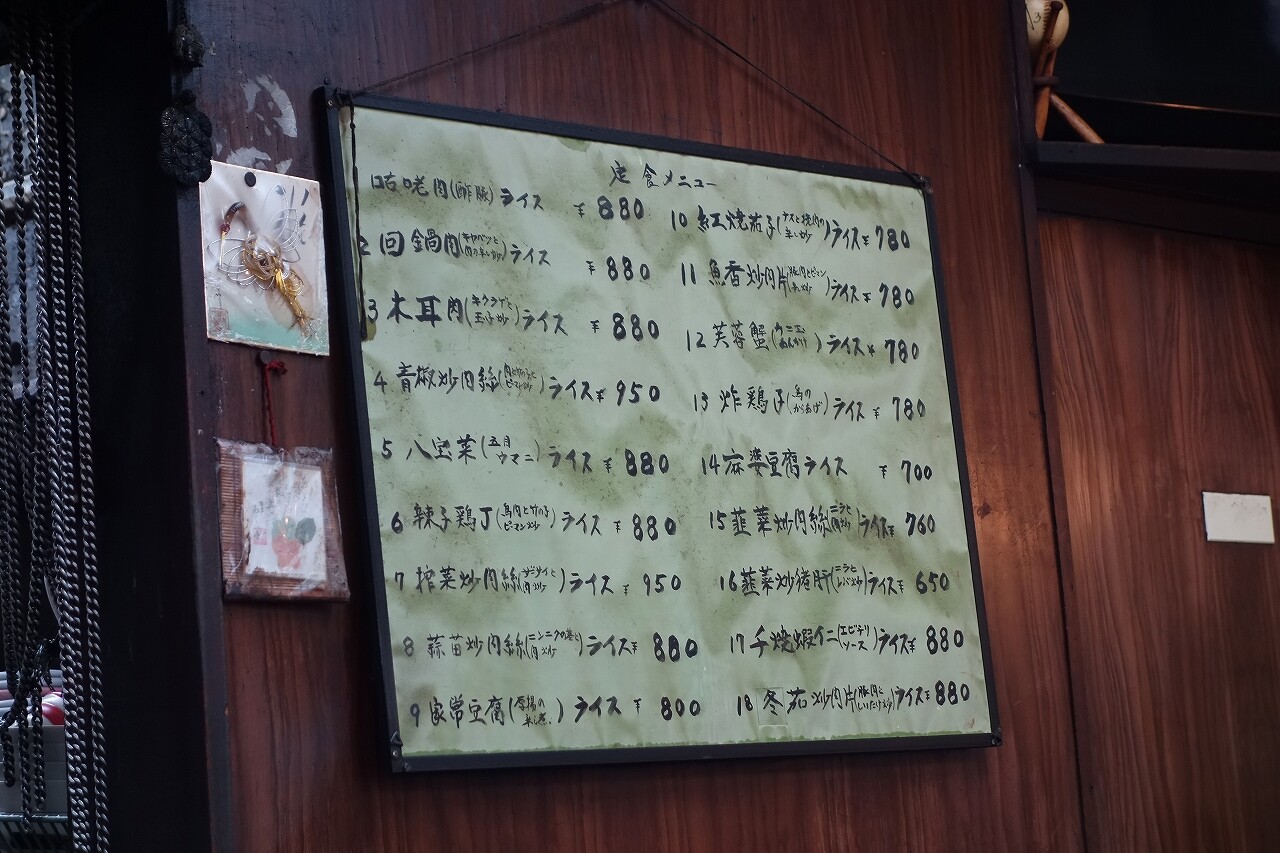 定食メニュー
咕咾肉(酢豚)ライス ¥880
2 回鍋肉(キャベツと肉のみそ炒)ライス ¥880
3 木耳肉(キクラゲと玉子炒)ライス ¥880
4 青椒炒肉絲ライス¥950
5 八宝菜(五目ウマニ)ライス ¥880
6 辣子鶏丁(鳥肉と竹の子ピーマン炒)ライス ¥880
7 搾菜炒肉絲(ザーサイと肉炒)ライス ¥950
8 蒜苗炒肉絲(ニンニクの茎と肉炒)ライス¥880
9 家常豆腐ライス ¥800
10 紅焼茄子(ナスと挽肉のみそ炒)ライス¥780
11 魚香炒肉片ライス¥780
12 芙蓉蟹ライス¥780
13 炸鶏子(鳥のからあげ)ライス ¥780
14 麻婆豆腐ライス ¥700
15 韮菜炒肉絲(ニラと肉炒)ライス¥760
16 韮菜炒猪肝(ニラとレバ炒)ライス¥650
17 干焼蝦仁(エビチリソース)ライス¥880
18 冬茄炒肉片(豚肉としいたけ炒)ライス¥880